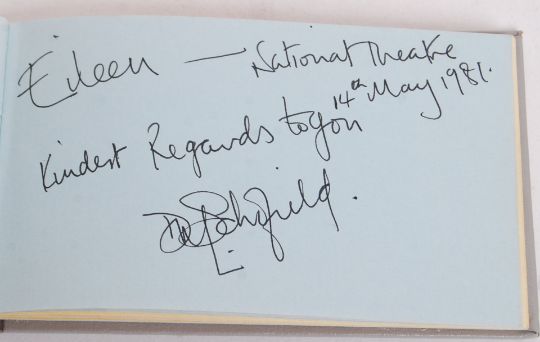 Eileen — National Theatre
14th May 1981.
Kindest Regards to you
Schofield.